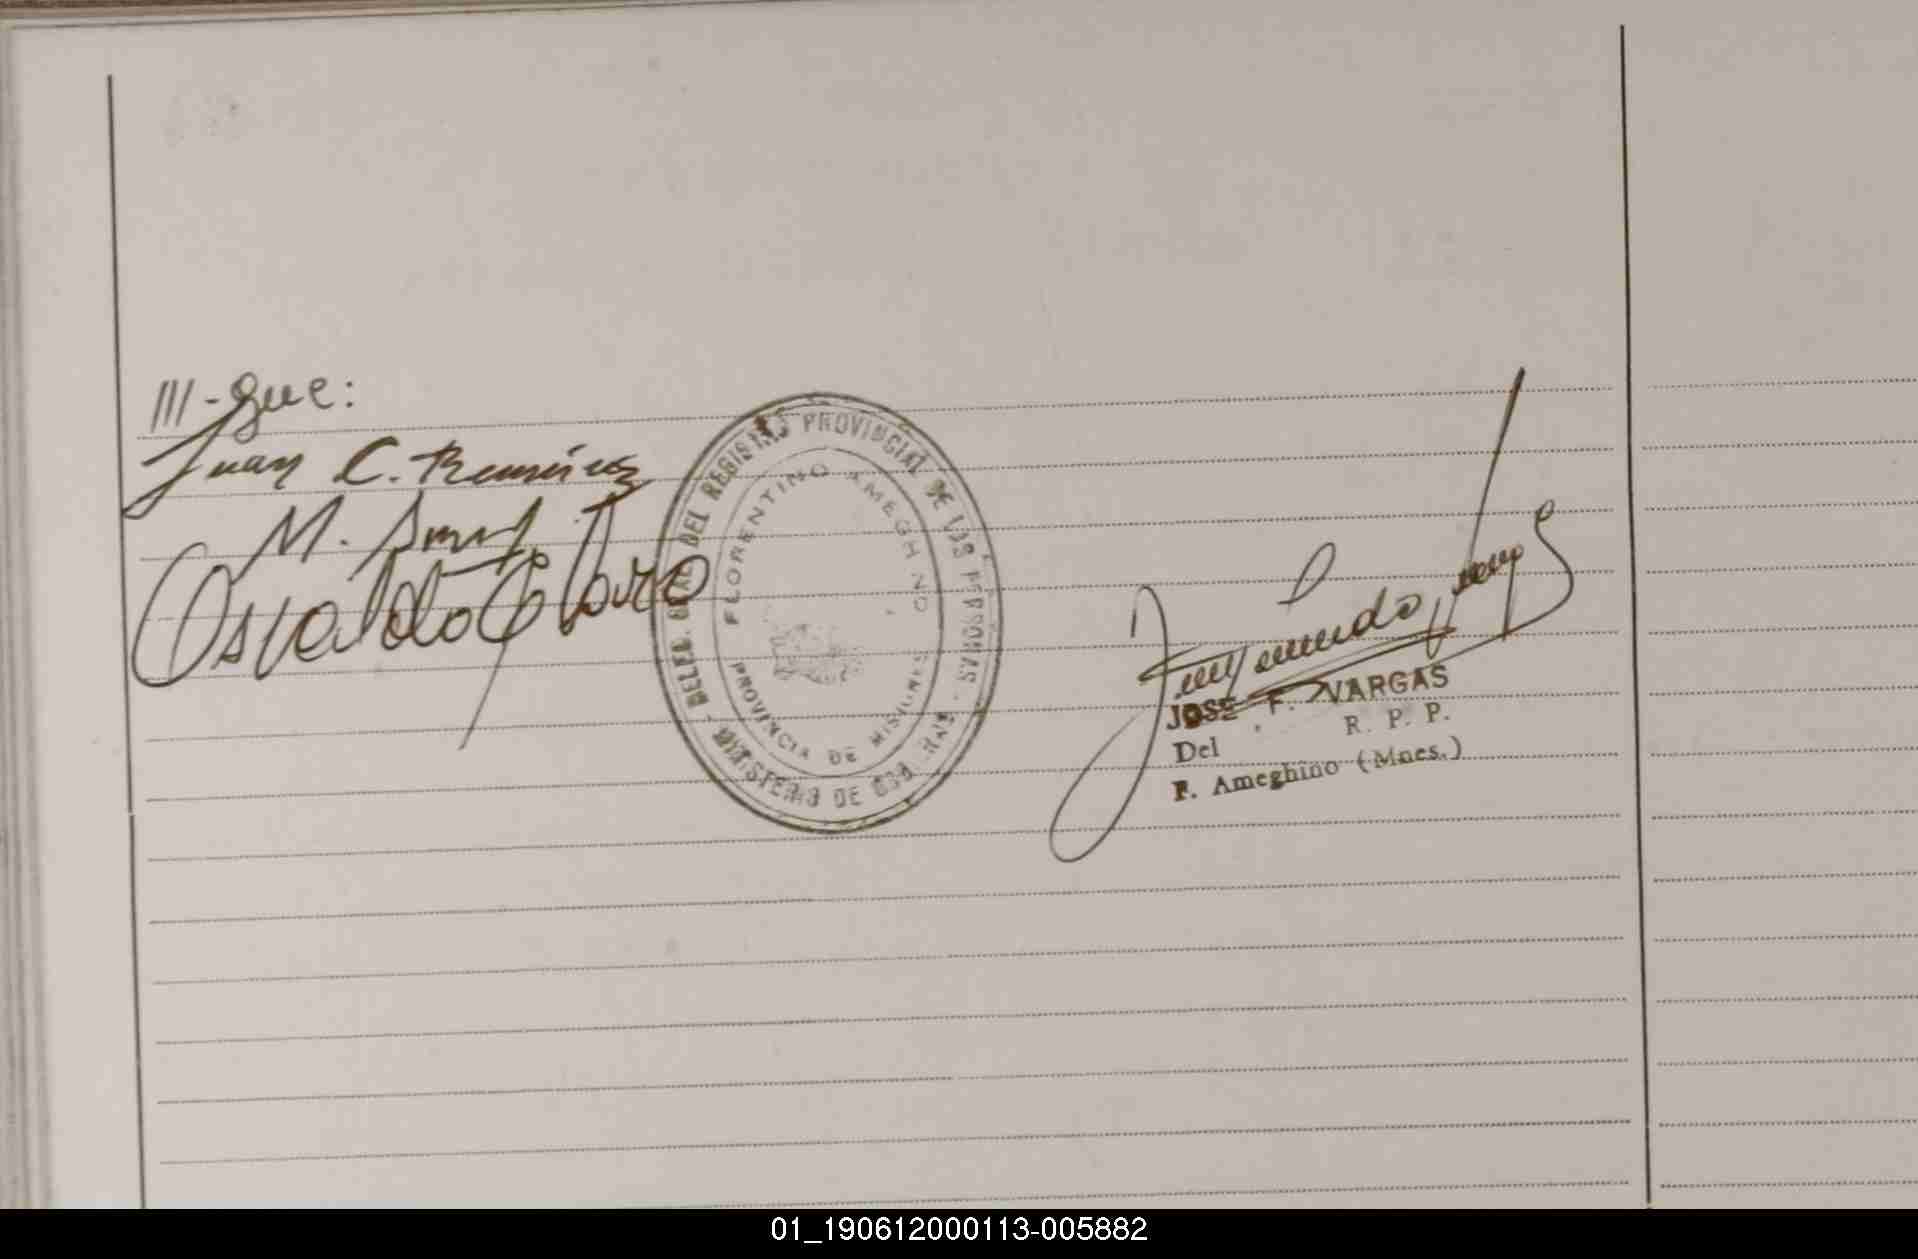 III-gue:
Juan C. Ramírez
M.
Osvaldo
DELEG. GRAL. DEL REGISTRO PROVINCIAL DE LAS PERSONAS
FLORENTINO AMEGHINO
PROVINCIA DE MISIONES
MINISTERIO DE GOB.
JOSE F. VARGAS
Del R. P. P.
F. Ameghino (Mnes.)
01_190612000113-005882